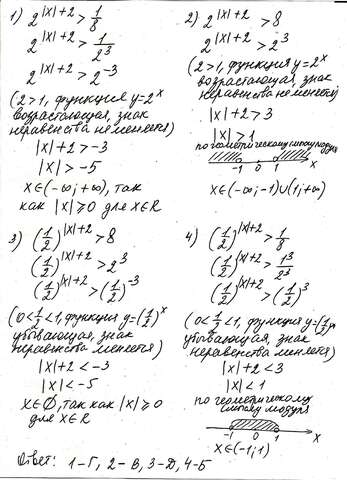 1) 2^{|x|+2} > 1/8
2^{|x|+2} > 1/2^3
2^{|x|+2} > 2^{-3}
(2>1, функция y=2^x
возрастающая, знак
неравенства не меняется)
|x|+2 > -3
|x| > -5
x∈(-∞;+∞), так
как |x|≥0 для x∈R
2) 2^{|x|+2} > 8
2^{|x|+2} > 2^3
(2>1, функция y=2^x
возрастающая, знак
неравенства не меняется)
|x|+2 > 3
|x| > 1
по геометрическому смыслу модуля
-1 0 1 x
x∈(-∞;-1)∪(1;+∞)
3) (1/2)^{|x|+2} > 8
(1/2)^{|x|+2} > 2^3
(1/2)^{|x|+2} > (1/2)^{-3}
(0<1/2<1, функция y=(1/2)^x
убывающая, знак
неравенства меняется)
|x|+2 < -3
|x| < -5
x∈Ø, так как |x|≥0
для x∈R
4) (1/2)^{|x|+2} > 1/8
(1/2)^{|x|+2} > 1^3/2^3
(1/2)^{|x|+2} > (1/2)^3
(0<1/2<1, функция y=(1/2)^x
убывающая, знак
неравенства меняется)
|x|+2 < 3
|x| < 1
по геометрическому
смыслу модуля
-1 0 1 x
x∈(-1;1)
Ответ: 1-Г, 2-В, 3-Д, 4-Б